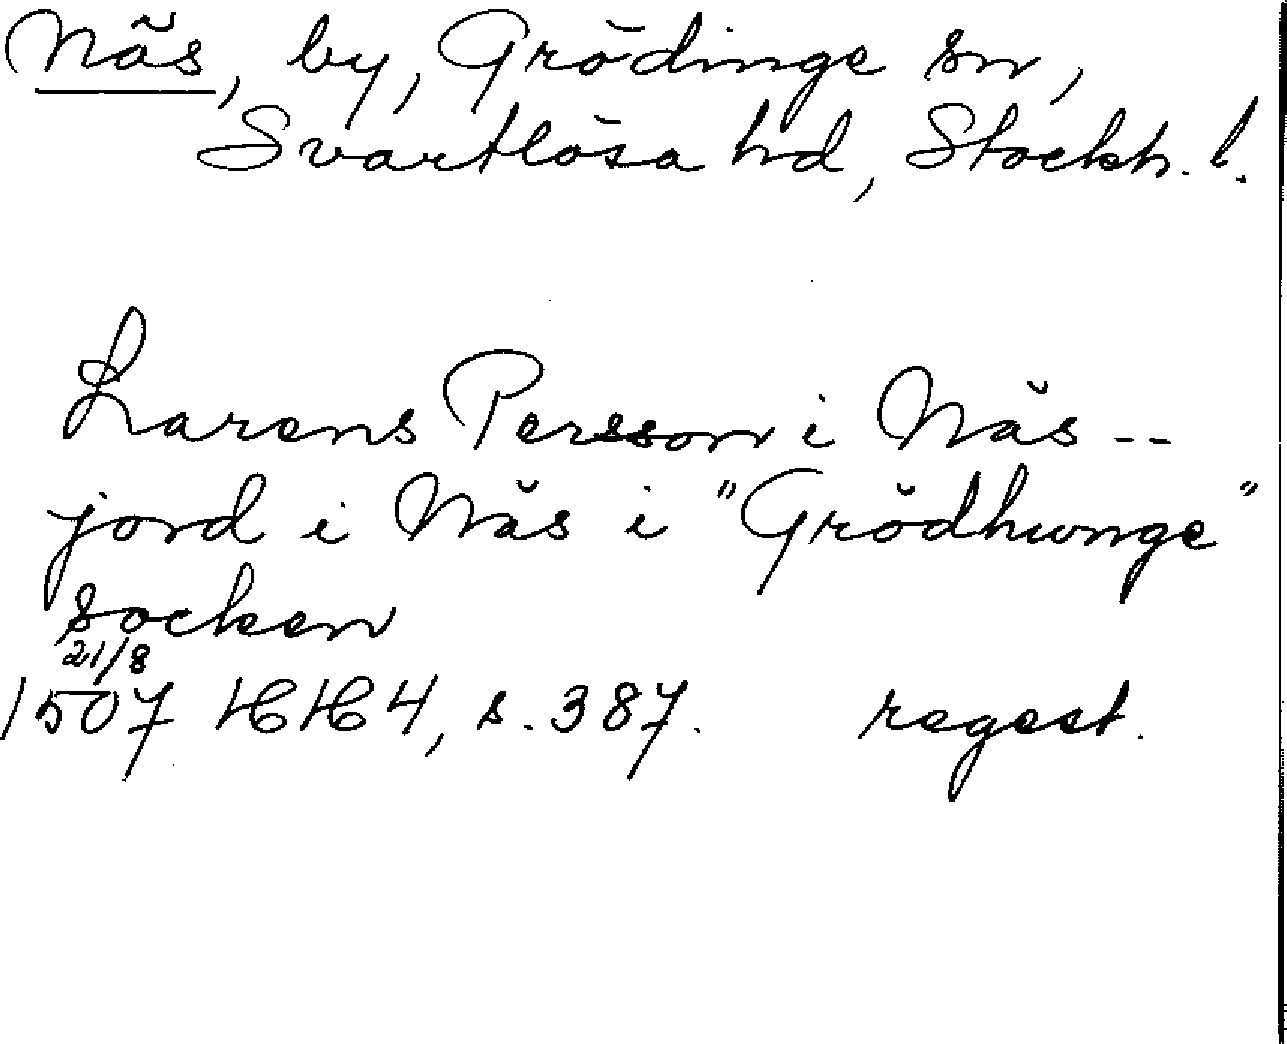 Näs, by, Grödinge sn,
Svartlösa hd, Stockh. l.
Larens Persson i Näs --
jord i Näs i "Grödhunge"
socken
21/8
1507 HH 4, s. 387. regest.